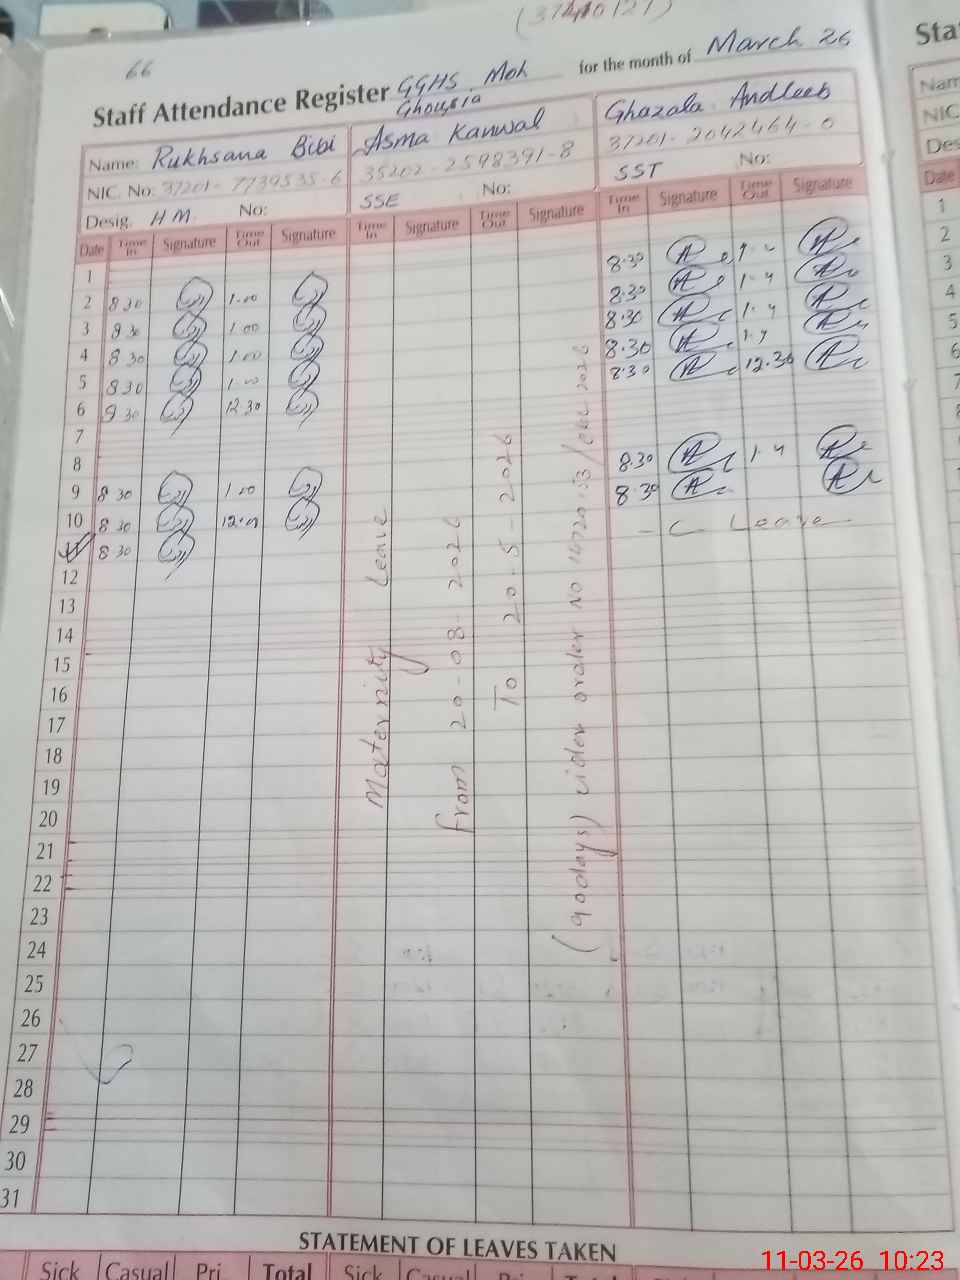 (37410127)
66
Staff Attendance Register GGHS Moh Ghousia for the month of March 26
Name: Rukhsana Bibi Asma Kanwal Ghazala Andleeb
NIC. No: 37201-7739535-6 35202-2598391-8 37201-2042464-0
Desig. H M. No: SSE No: SST No:
Date Time In Signature Time Out Signature Time In Signature Time Out Signature Time In Signature Time Out Signature
1
2 8 30 1.00 8.30 1.4
3 8 30 1.00 8.30 1.4
4 8 30 1.00 8.30 1.4
5 8 30 1.00 8.30 1.4
6 8 30 12.30 8.30 12.30
7
8
9 8 30 1.00 8.30 1.4
10 8 30 12.00 8.30
11 8 30 - C Leave -
12
13
14
15
16
17
18
19
20
21
22
23
24
25
26
27
28
29
30
31
Maternity Leave
from 20-08-2026
To 20-5-2026
(90days) vider order No
STATEMENT OF LEAVES TAKEN
Sick Casual Pri Total Sick Casual Pri Total
Sta
Nam
NIC
Des
Date
1
2
3
4
5
6
7
11-03-26 10:23